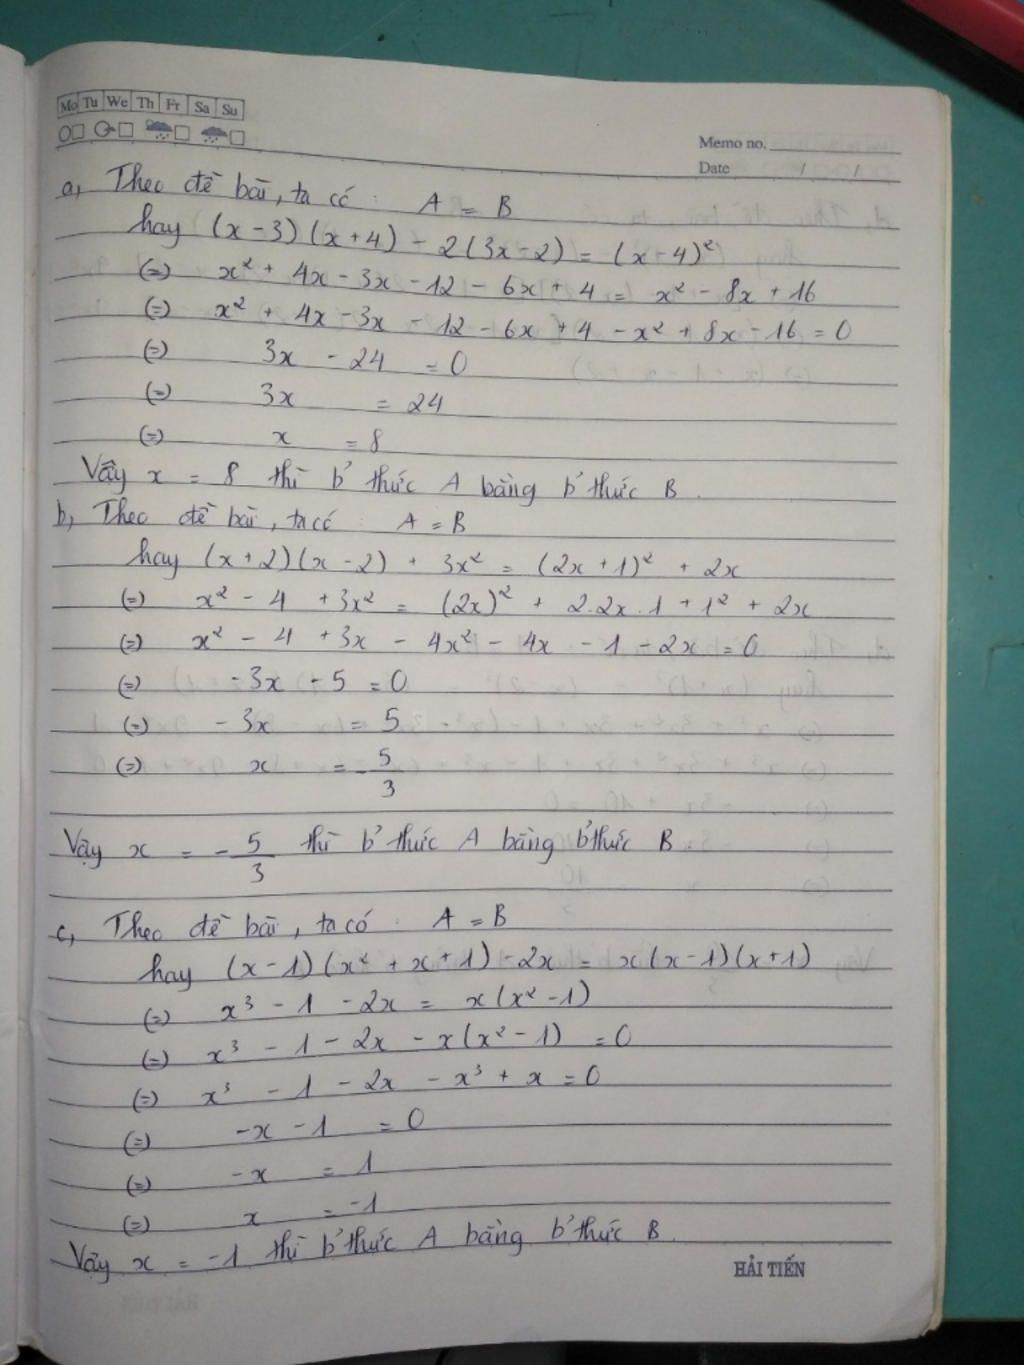 Mo Tu We Th Fr Sa Su
Memo no.
Date / /
a, Theo đề bài, ta có: A = B
hay (x-3)(x+4) - 2(3x-2) = (x-4)²
(=) x² + 4x - 3x - 12 - 6x + 4 = x² - 8x + 16
(=) x² + 4x - 3x - 12 - 6x + 4 - x² + 8x - 16 = 0
(=) 3x - 24 = 0
(=) 3x = 24
(=) x = 8
Vậy x = 8 thì b' thức A bằng b' thức B.
b, Theo đề bài, ta có A = B
hay (x+2)(x-2) + 3x² = (2x+1)² + 2x
(=) x² - 4 + 3x² = (2x)² + 2.2x.1 + 1² + 2x
(=) x² - 4 + 3x - 4x² - 4x - 1 - 2x = 0
(=) -3x - 5 = 0
(=) -3x = 5
(=) x = -5/3
Vậy x = -5/3 thì b' thức A bằng b' thức B
c, Theo đề bài, ta có: A = B
hay (x-1)(x²+x+1) - 2x = x(x-1)(x+1)
(=) x³ - 1 - 2x = x(x²-1)
(=) x³ - 1 - 2x - x(x²-1) = 0
(=) x³ - 1 - 2x - x³ + x = 0
(=) -x - 1 = 0
(=) -x = 1
(=) x = -1
Vậy x = -1 thì b' thức A bằng b' thức B.
HẢI TIẾN